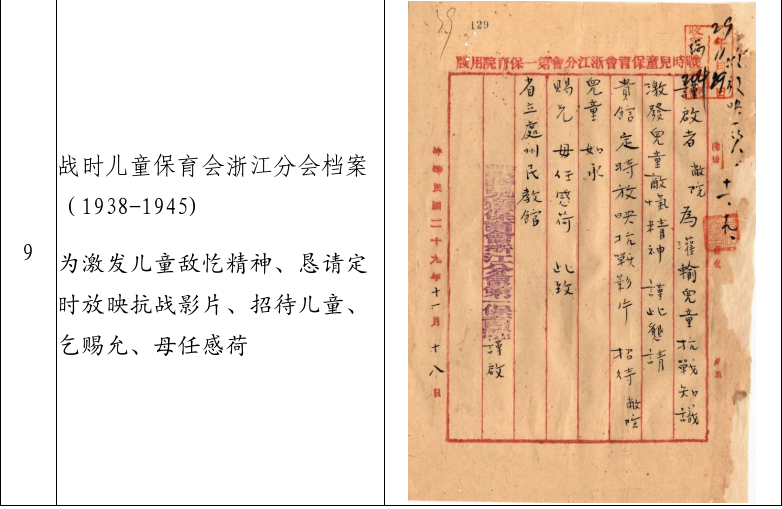 9
战时儿童保育会浙江分会档案
(1938-1945)
为激发儿童敌忾精神、恳请定
时放映抗战影片、招待儿童、
乞赐允、毋任感荷
129
戰時兒童保育會浙江分會第一保育院用牋
謹啟者 敝院 為灌輸兒童抗戰知識
激發兒童敵愾精神 謹此懇請
貴館定時放映抗戰影片 招待 敝院
兒童 如承
賜允 毋任感荷 此致
省立處州民教館
謹啟
中華民國二十九年十一月十八日